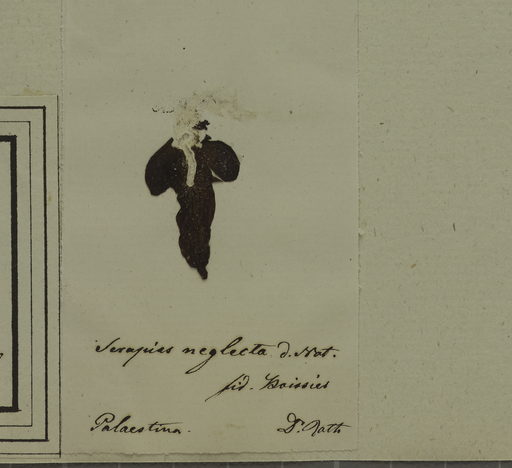 Serapias neglecta d. Not.
fid. Boissier
Palaestina. Dr. Roth